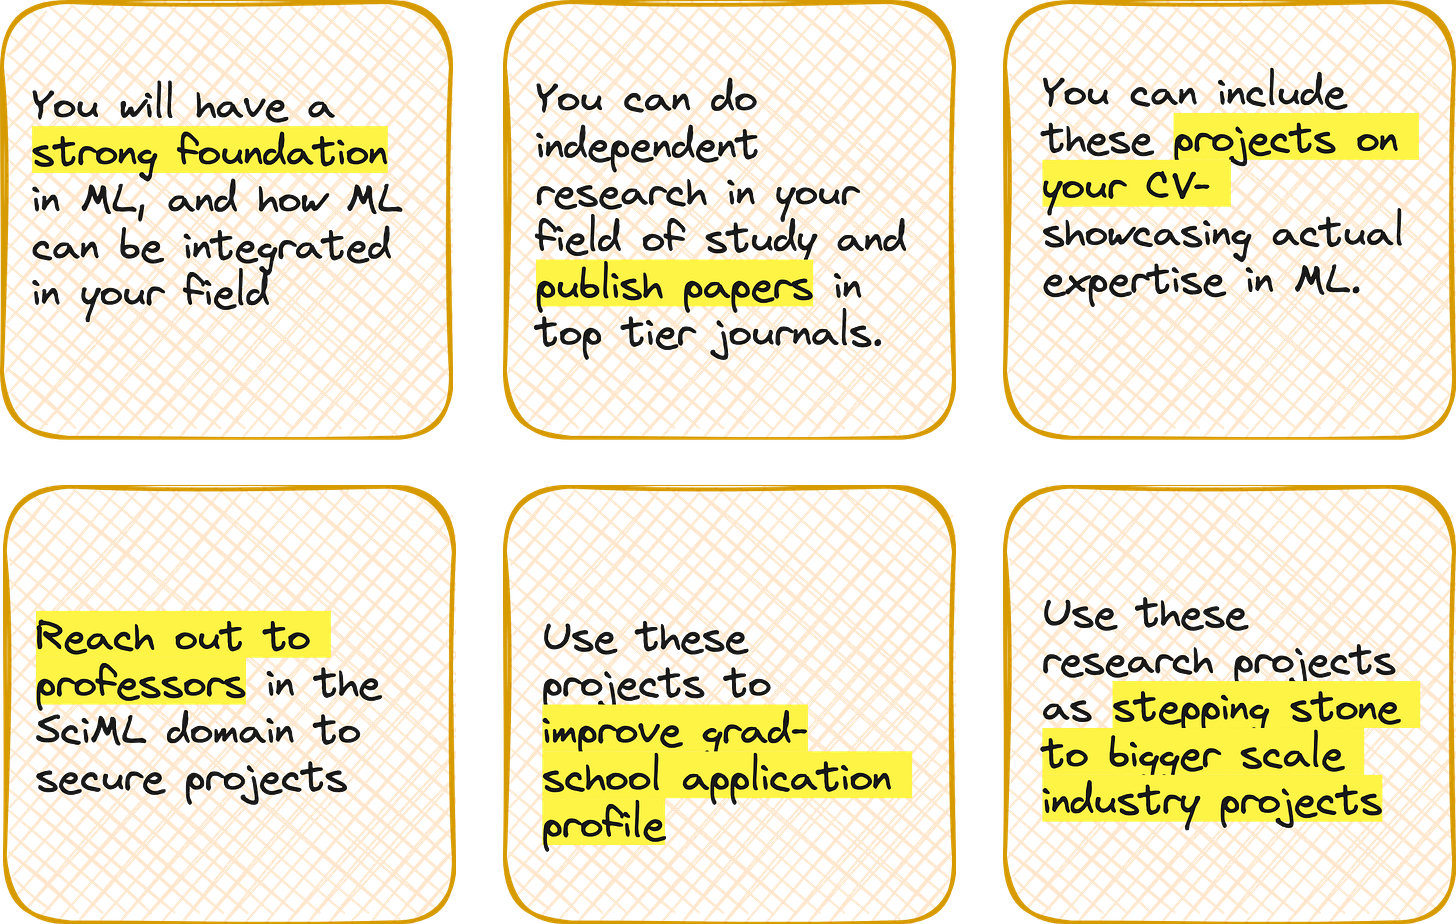 You will have a
strong foundation
in ML, and how ML
can be integrated
in your field
You can do
independent
research in your
field of study and
publish papers in
top tier journals.
You can include
these projects on
your CV-
showcasing actual
expertise in ML.
Reach out to
professors in the
SciML domain to
secure projects
Use these
projects to
improve grad-
school application
profile
Use these
research projects
as stepping stone
to bigger scale
industry projects